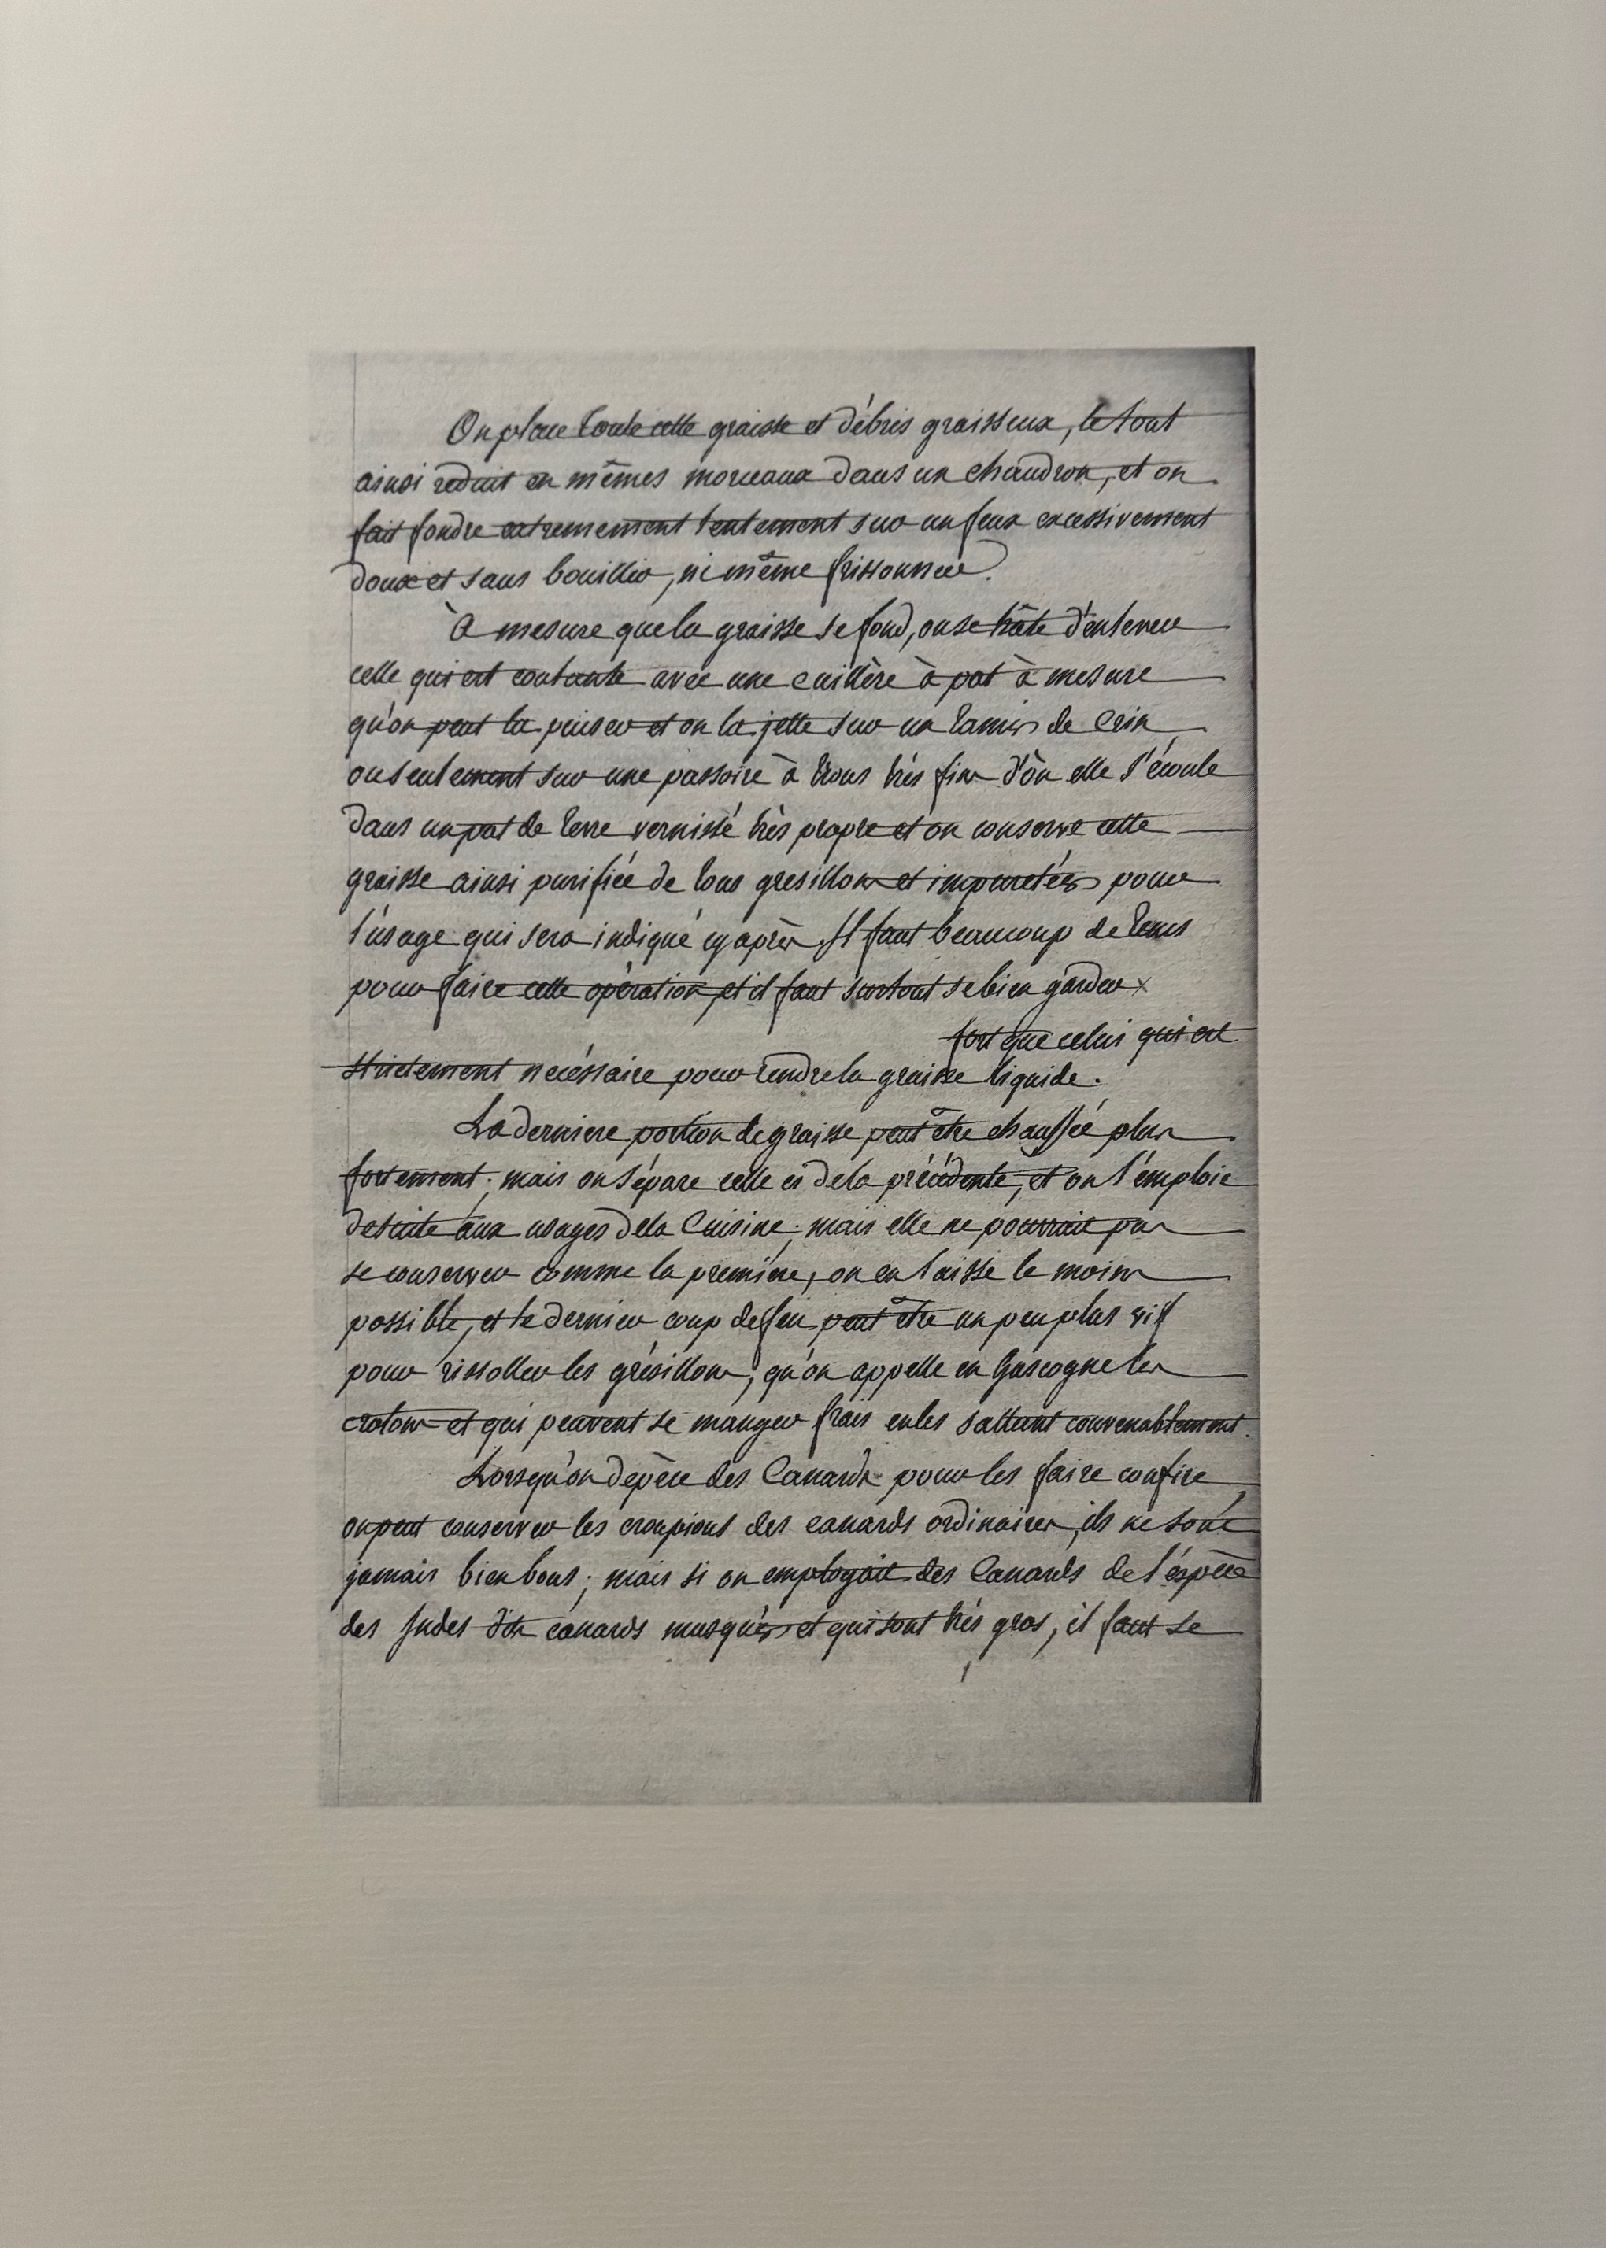 On place toute cette graisse et débris graisseux, le tout
ainsi reduit en mêmes morceaux dans un chaudron, et on
fait fondre extremement lentement sur un feux excessivement
doux et sans bouillir, ni même frissonner.
à mesure que la graisse se fond, on se hâte d'enlever
celle qui est coulante avec une cuillère à pot à mesure
qu'on peut la puiser et on la jette sur un tamis de Crin
ou seulement sur une passoire à trous très fins d'òn elle s'écoule
dans un pot de terre vernissé très propre et on conserve cette
graisse ainsi purifiée de tous gresillons et impuretés pour
l'úsage qui sera indiqué cy après. Il faut beaucoup de tems
pour faire cette opération, et il faut surtout se bien garder x
fort que celui qui est
strictement necéssaire pour rendre la graisse liquide.
La derniere portion de graisse peut être chauffée plus
fortement; mais on sépare celle ci de la précédente, et on l'émploie
de suite aux usages de la Cuisine; mais elle ne pourrait pas
se conserver comme la première, on en laisse le moins
possible, et le dernier coup de feu peut être un peu plus vif
pour rissoller les grésillons, qu'on appelle en Gascogne les
crotons et qui peuvent se manger frais en les sallant convenablement.
Lorsqu'on dépèce des Canards pour les faire confire,
on peut conserver les croupions des canards ordinaires, ils ne sont
jamais bien bons; mais si on employait des Canards de l'éspèce
des Indes dits canards musqués et qui sont très gros, il faut se